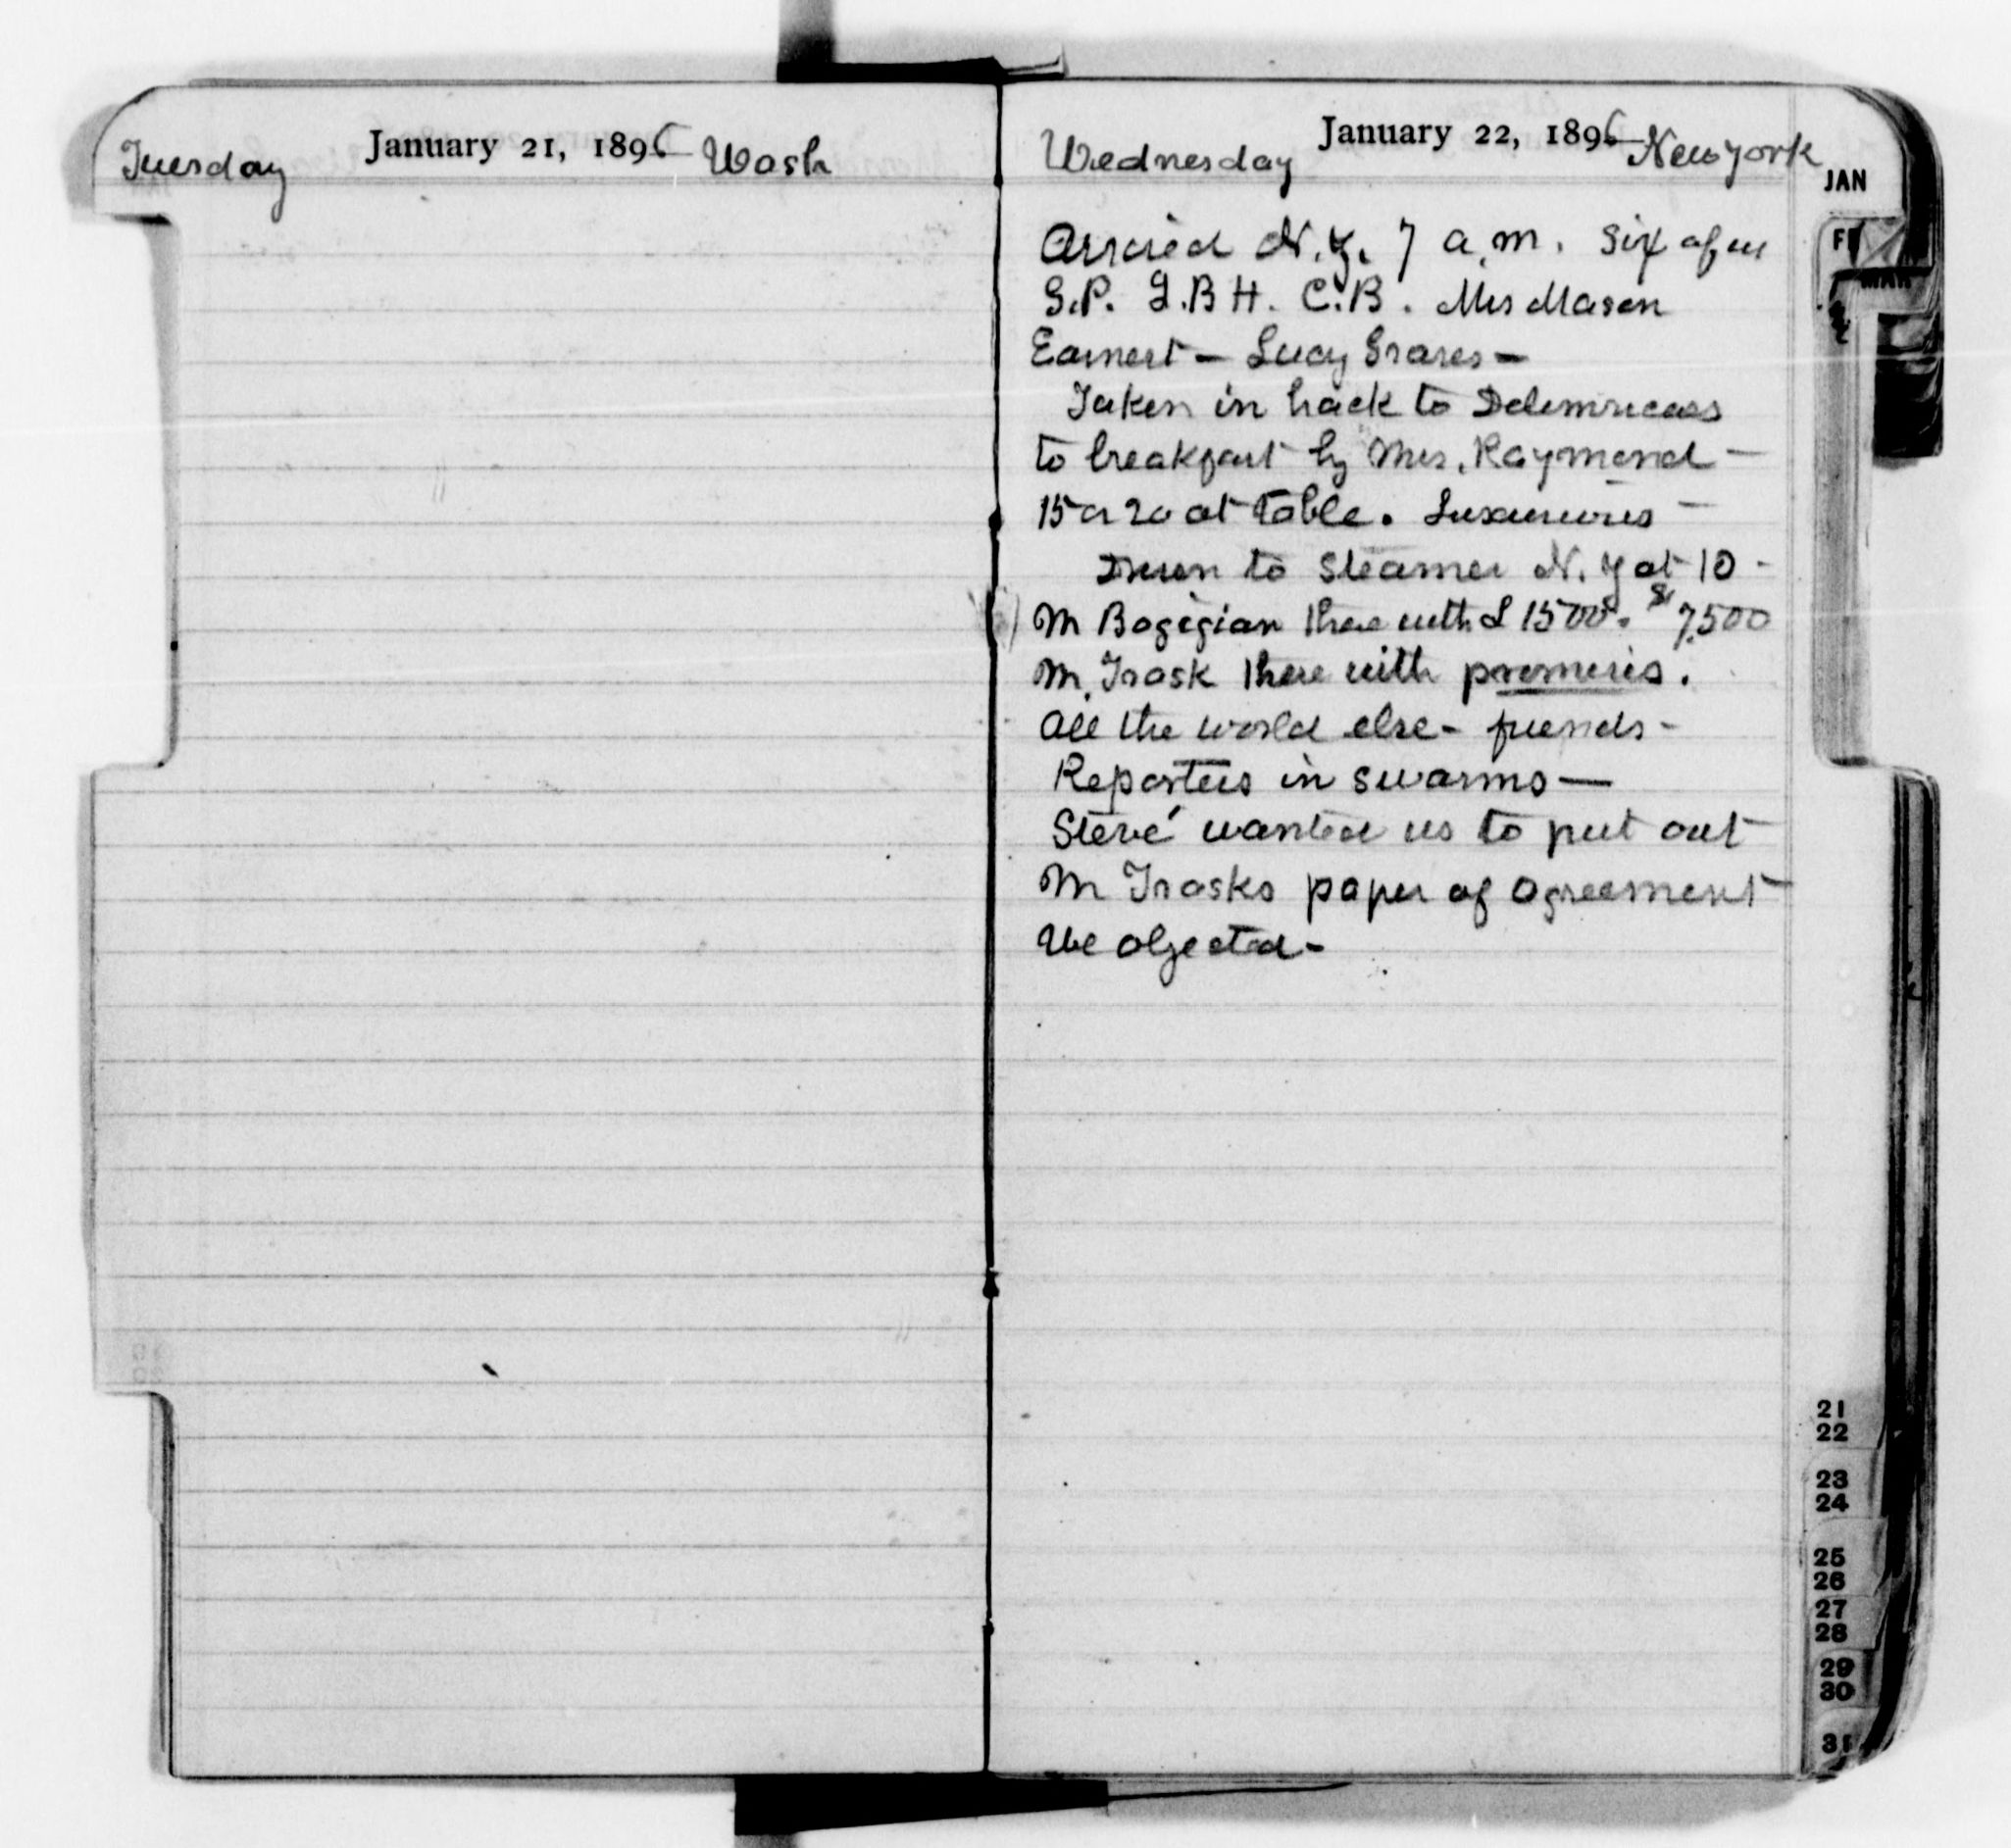 Tuesday January 21, 1896 Wash
Wednesday January 22, 1896 New York
JAN
Arrived N.Y. 7 a.m. Six of us
G.P. L.B H. C.B. Mis Mason
Earnest – Lucy Graves –
Taken in hack to Delmonicoes
to breakfast by Mrs. Raymond –
15 or 20 at table. Luxurious –
Driven to Steamer N.Y at 10 -
M Bogigian there with £ 1500. $ 7,500
M. Trask there with promises.
All the world else – friends –
Reporters in swarms —
Steve wanted us to put out
M Trasks paper of agreement
We objected –
21
22
23
24
25
26
27
28
29
30
31